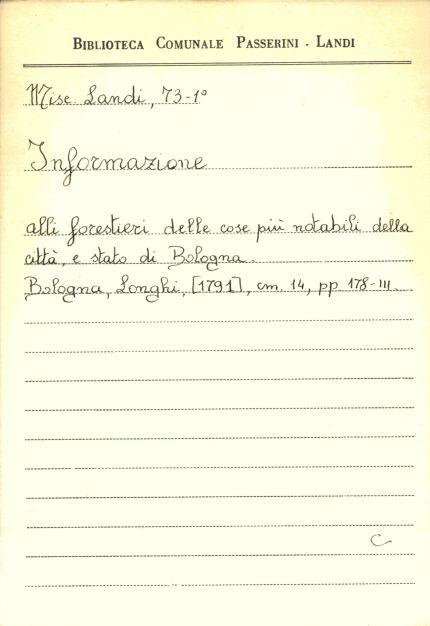 BIBLIOTECA COMUNALE PASSERINI - LANDI
Misc Landi, 73-1°
Informazione
alli forestieri delle cose più notabili della
città, e stato di Bologna.
Bologna, Longhi, [1791], cm. 14, pp. 178-III.
C